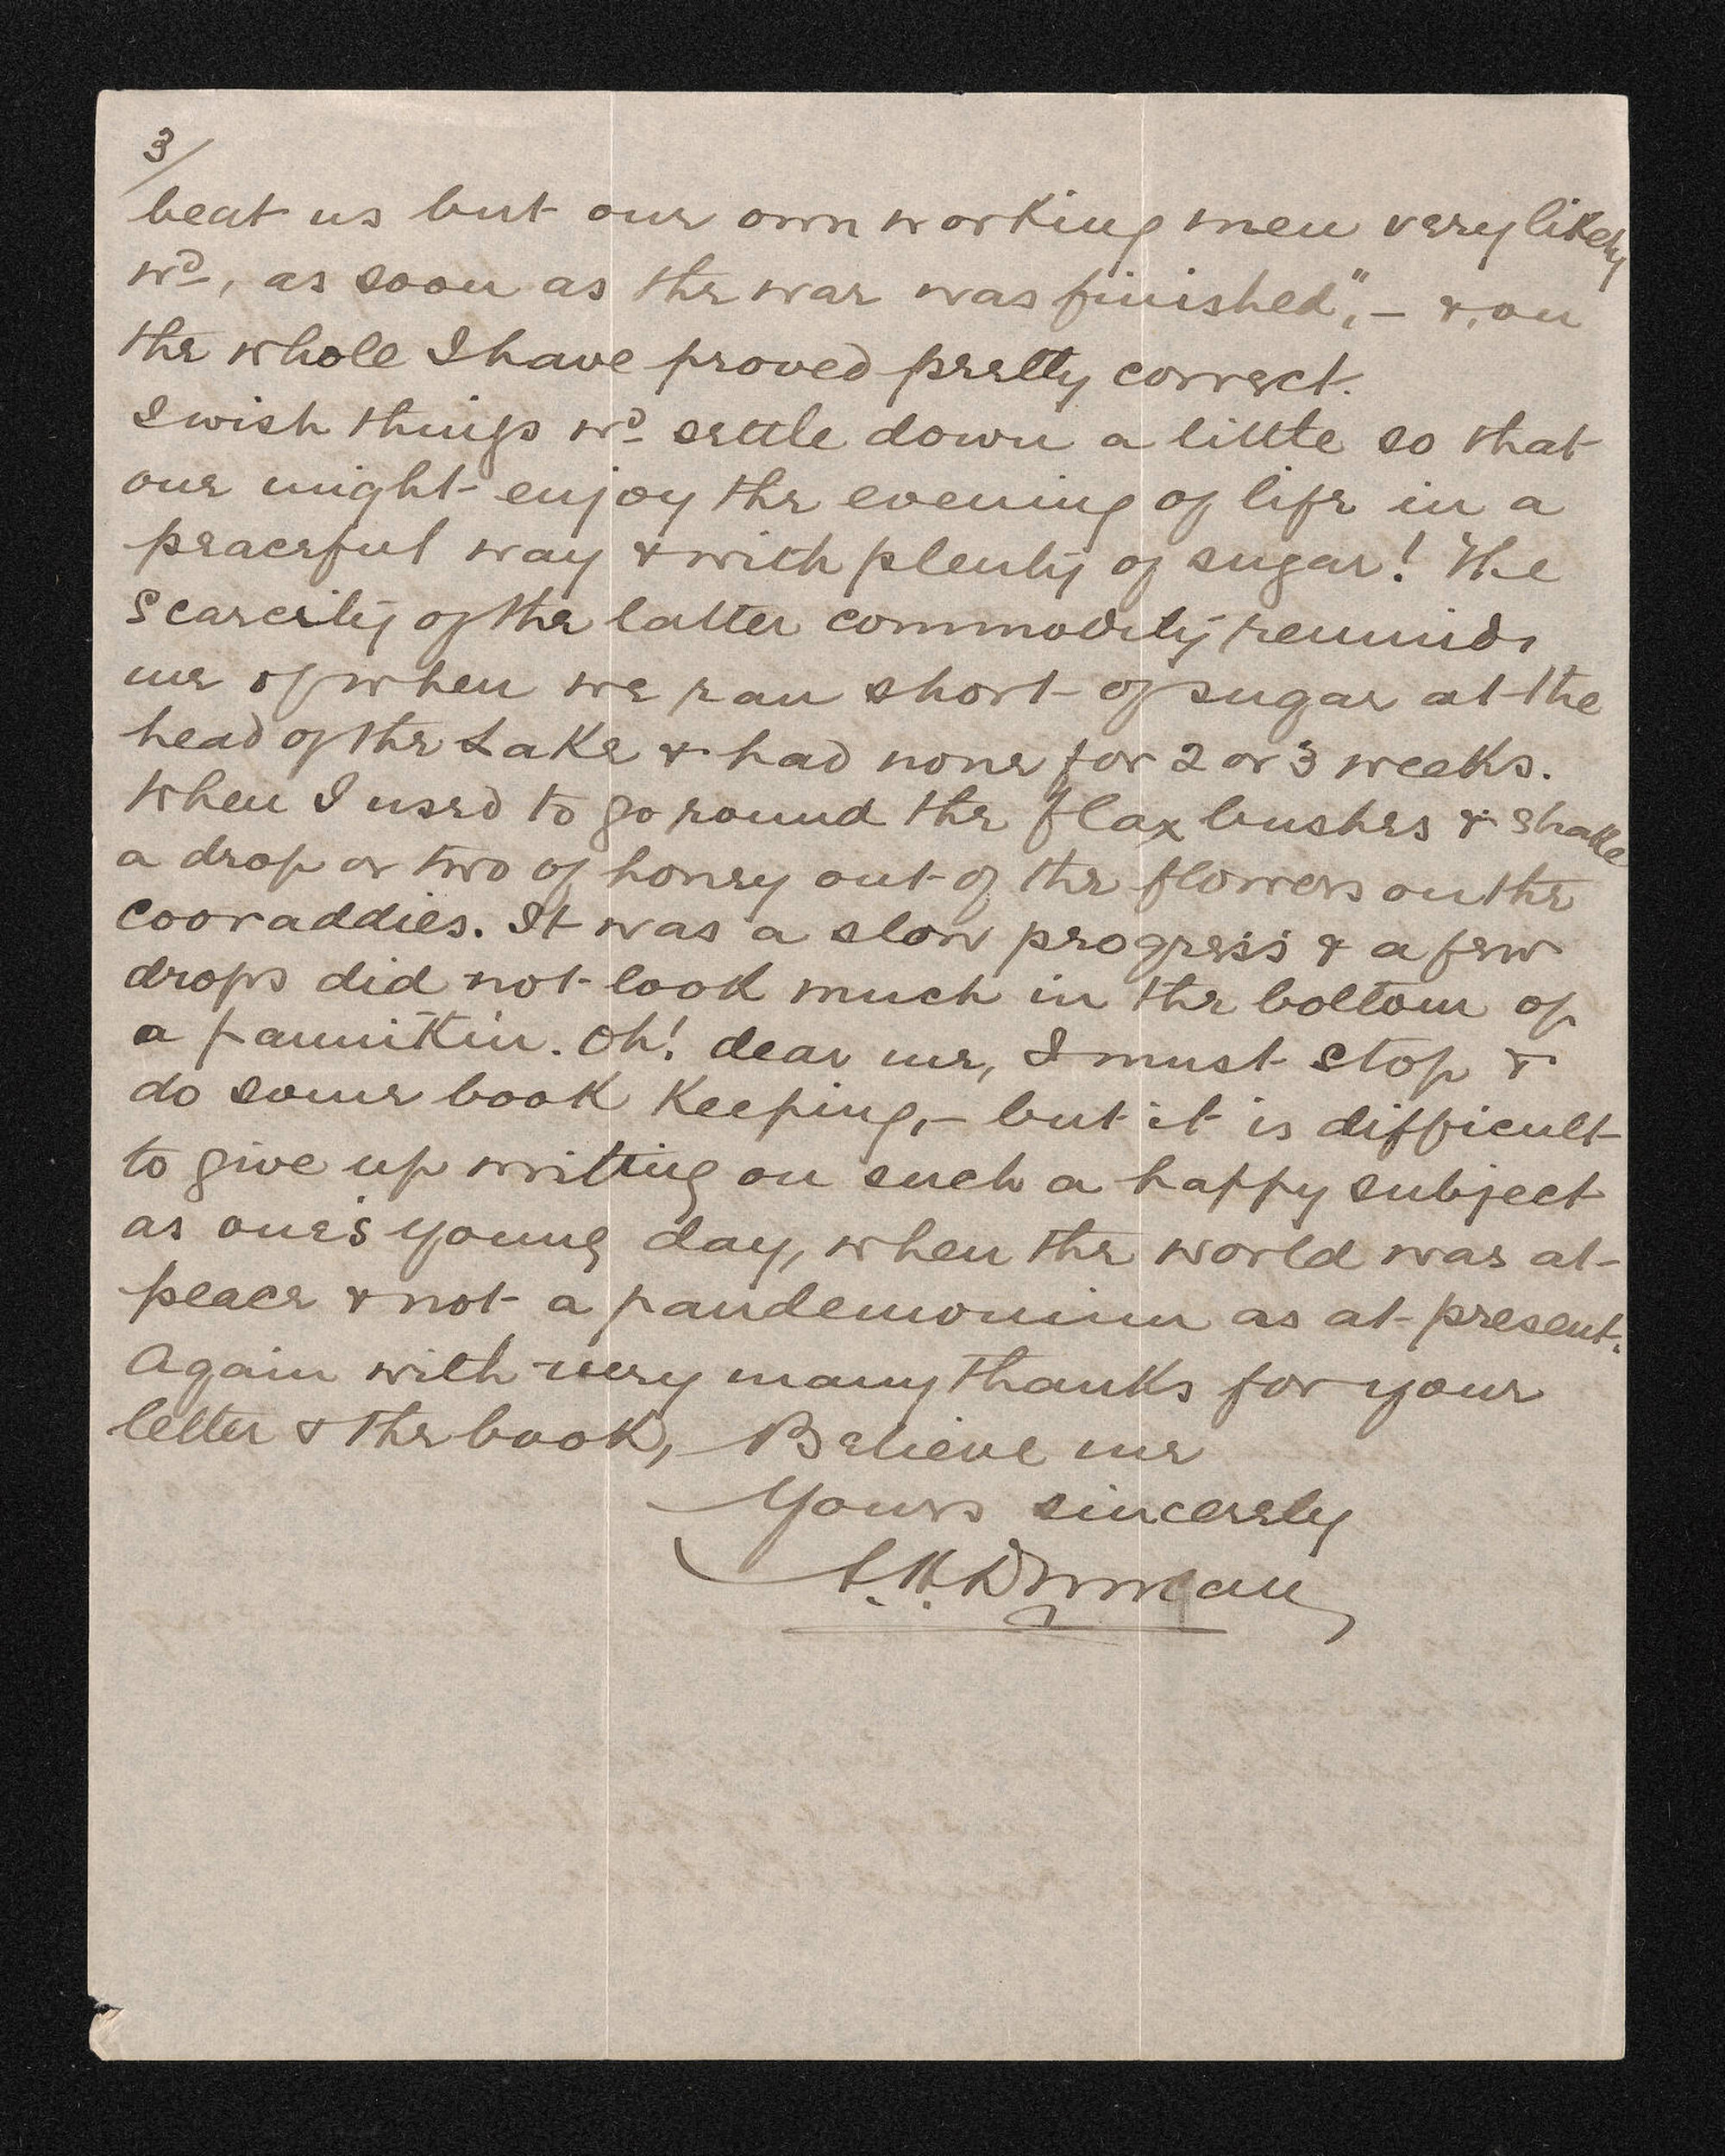 3/
beat us but our own working men very likely
wd, as soon as the war was finished", – &, on
the whole I have proved pretty correct.
I wish things wd settle down a little so that
one might enjoy the evening of life in a
peaceful way & with plenty of sugar! The
Scarcity of the latter commodity reminds
me of when we ran short of sugar at the
head of the Lake & had none for 2 or 3 weeks.
When I used to go round the flax bushes & shake
a drop or two of honey out of the flowers on the
cooraddies. It was a slow progress & a few
drops did not look much in the bottom of
a pannikin. Oh! dear me, I must stop &
do some book keeping, – but it is difficult
to give up writing on such a happy subject
as one's young day, when the world was at
peace & not a pandemonium as at present.
Again with very many thanks for your
letter & the book, Believe me
Yours sincerely